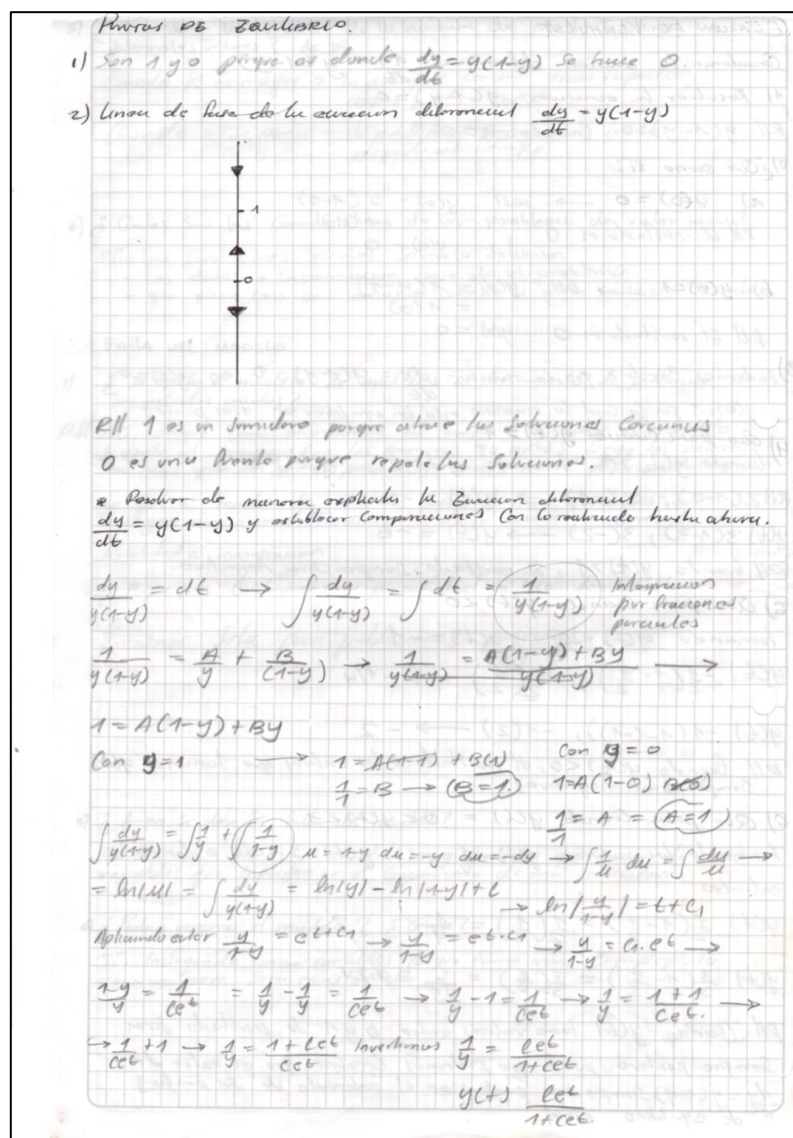 Puntos DE Equilibrio.
1) Son 1 y 0 porque es donde dy/dt = y(1-y) Se hace 0
2) Linea de fase de la ecuacion diferencial dy/dt = y(1-y)
1
0
R// 1 es un sumidero porque atrae las Soluciones Cercanas
0 es una fuente porque repele las Soluciones.
* Resolver de manera explicita la Ecuacion diferencial
dy/dt = y(1-y) y establecer Comparaciones Con lo realizado hasta ahora.
dy/y(1-y) = dt → ∫ dy/y(1-y) = ∫ dt = 1/y(1-y) Integracion por fracciones parciales
1/y(1-y) = A/y + B/(1-y) → 1/y(1-y) = A(1-y)+BY/y(1-y) →
1 = A(1-y)+BY
Con y=1 → 1=A(1-1)+B(1) Con y=0
1/1=B → (B=1.) 1=A(1-0) B(0)
1/1 = A = (A=1)
∫ dy/y(1-y) = ∫ 1/y + ∫ 1/1-y u = 1-y du=-y du=-dy → ∫ 1/u du = ∫ du/u →
= ln|u| = ∫ dy/y(1-y) = ln(y) - ln|1-y|+C → ln|y/1-y| = t+C1
Aplicando euler y/1-y = e^t+C1 → y/1-y = e^t·C1 → y/1-y = C1·e^t →
1-y/y = 1/Ce^t = 1/y - y/y = 1/Ce^t → 1/y - 1 = 1/Ce^t → 1/y = 1+1/Ce^t. →
→ 1/Ce^t +1 → 1/y = 1+Ce^t/Ce^t Invertimos 1/y = Ce^t/1+Ce^t
y(t) Ce^t/1+Ce^t.